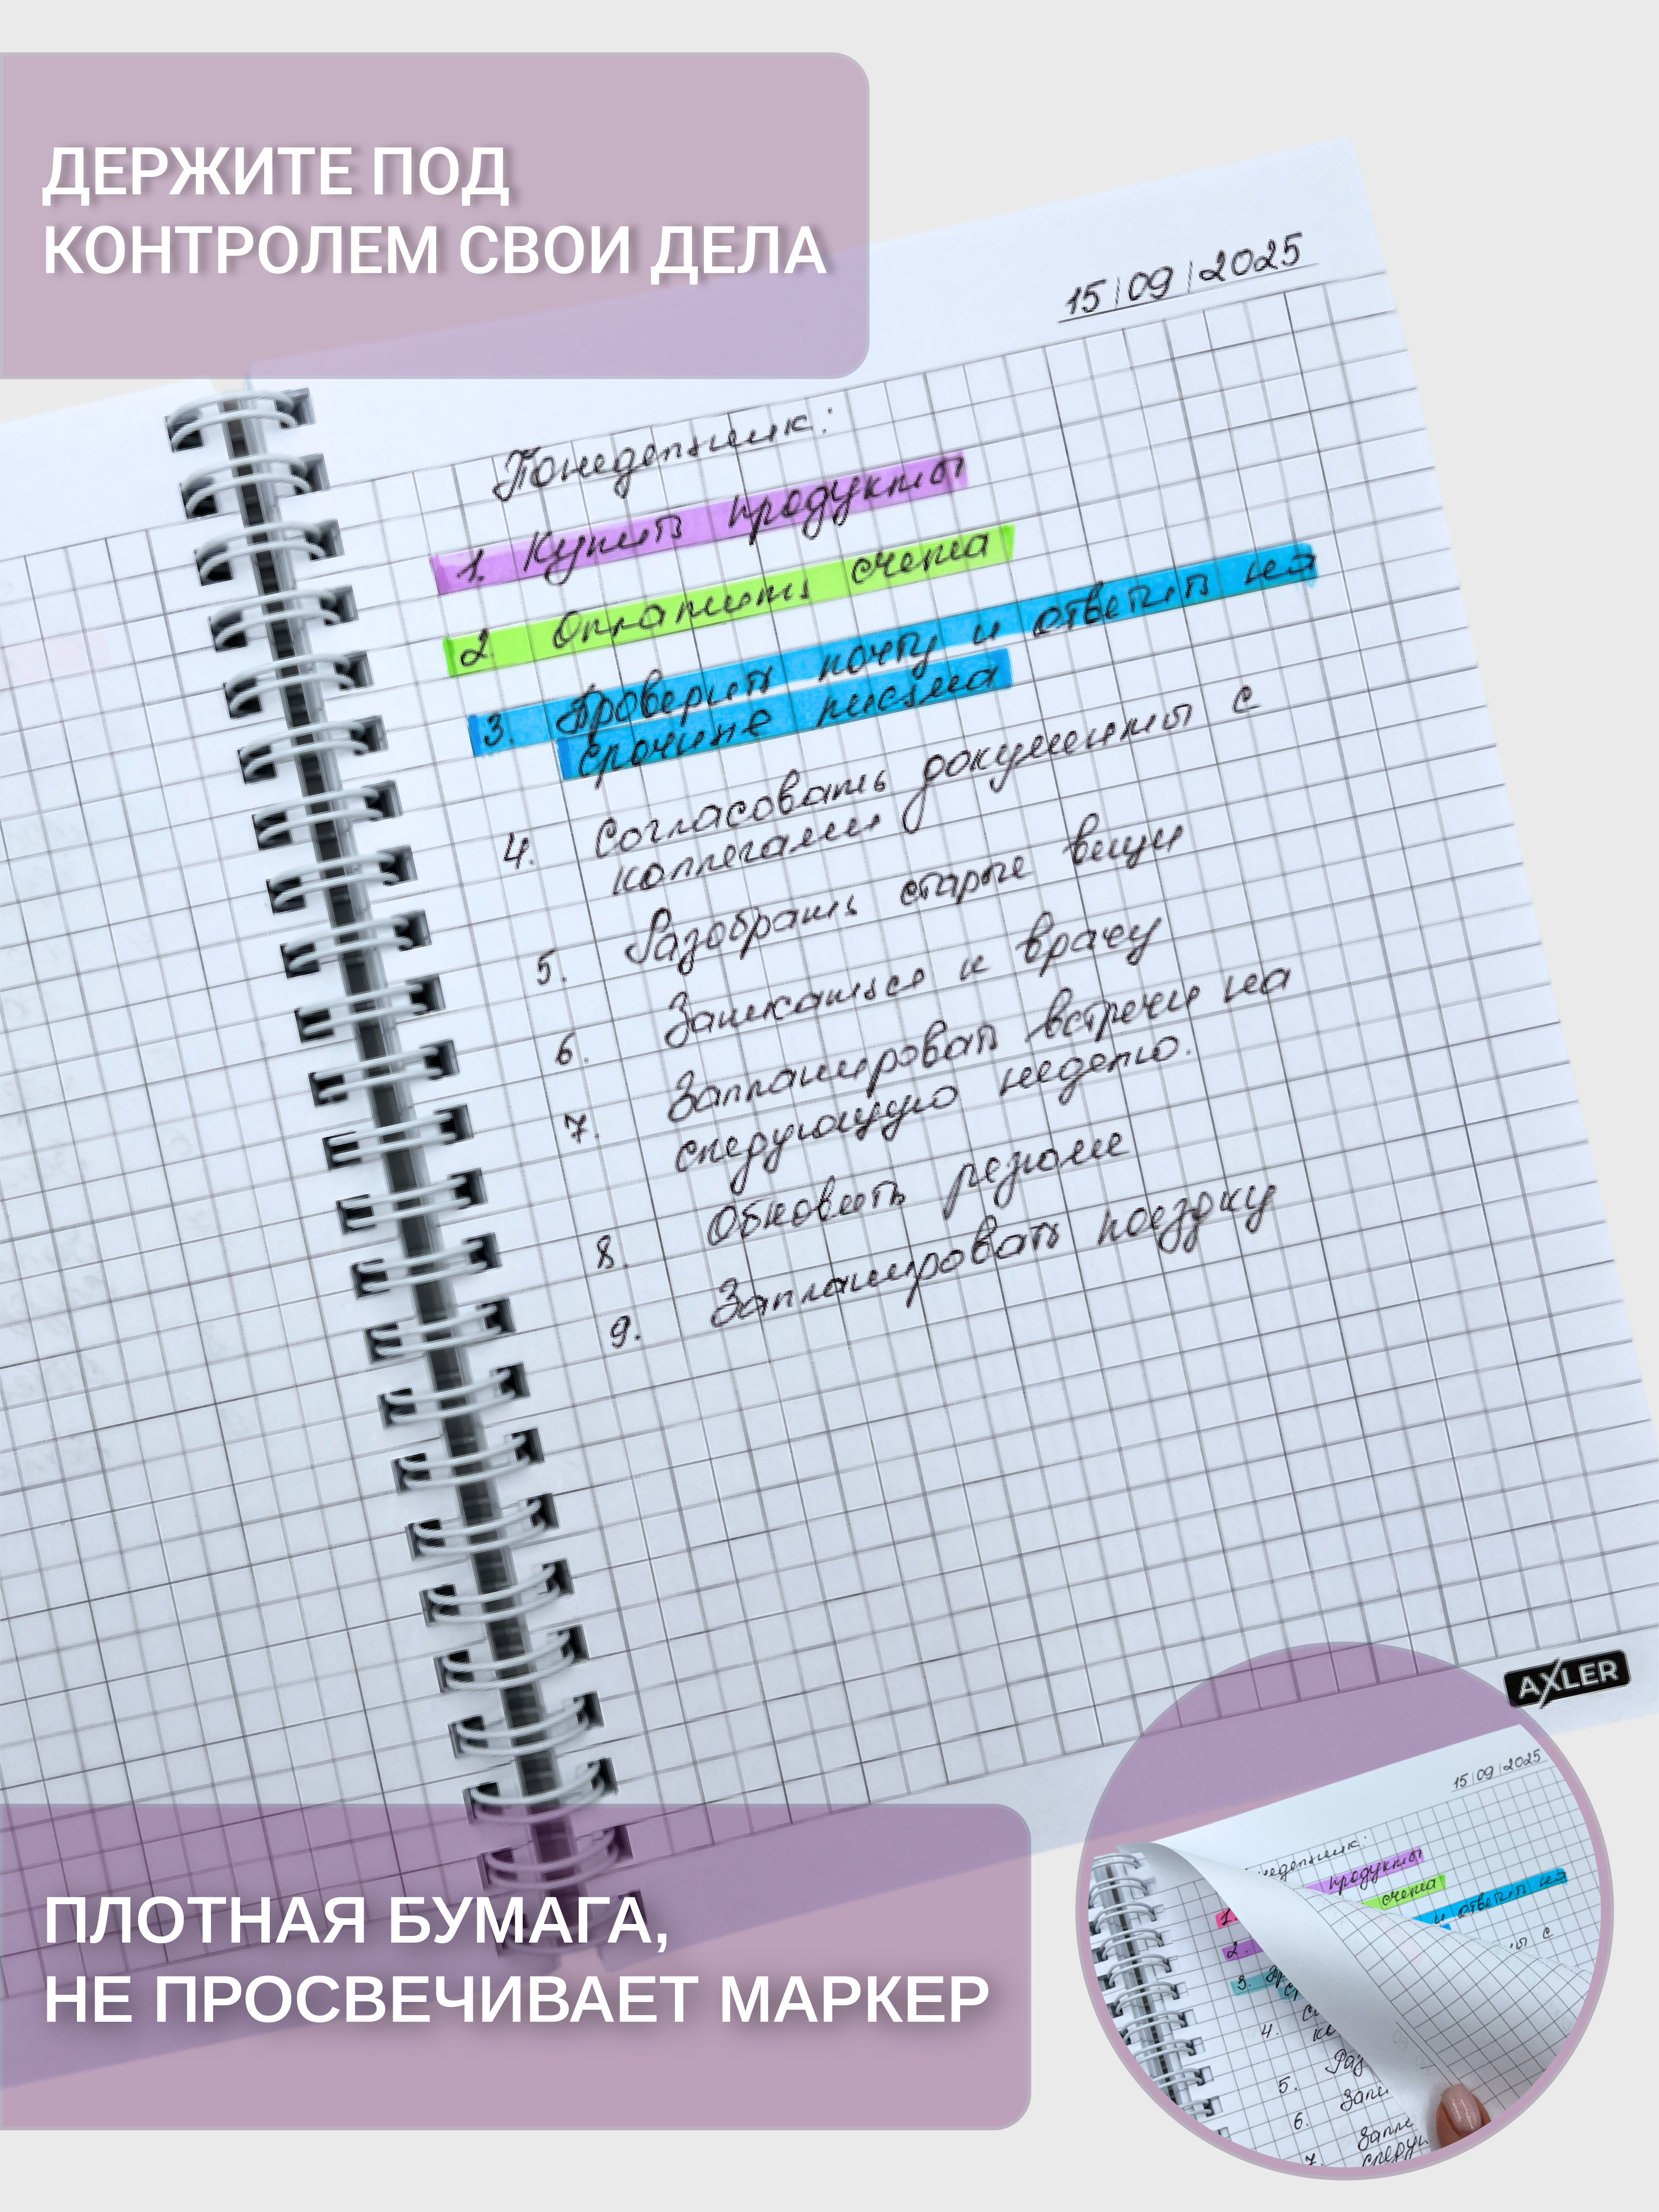 ДЕРЖИТЕ ПОД
КОНТРОЛЕМ СВОИ ДЕЛА
15|09|2025
Понедельник:
1. Купить продукты
2. Оплатить счета
3. Проверить почту и ответить на
срочные письма
4. Согласовать документы с
коллегами
5. Разобрать старые вещи
6. Записаться к врачу
7. Запланировать встречи на
следующую неделю.
8. Обновить резюме
9. Запланировать поездку
AXLER
ПЛОТНАЯ БУМАГА,
НЕ ПРОСВЕЧИВАЕТ МАРКЕР
15|09|2025
продукты
1. счета
2. и ответить на
3.
4. с
5.
6.
7.